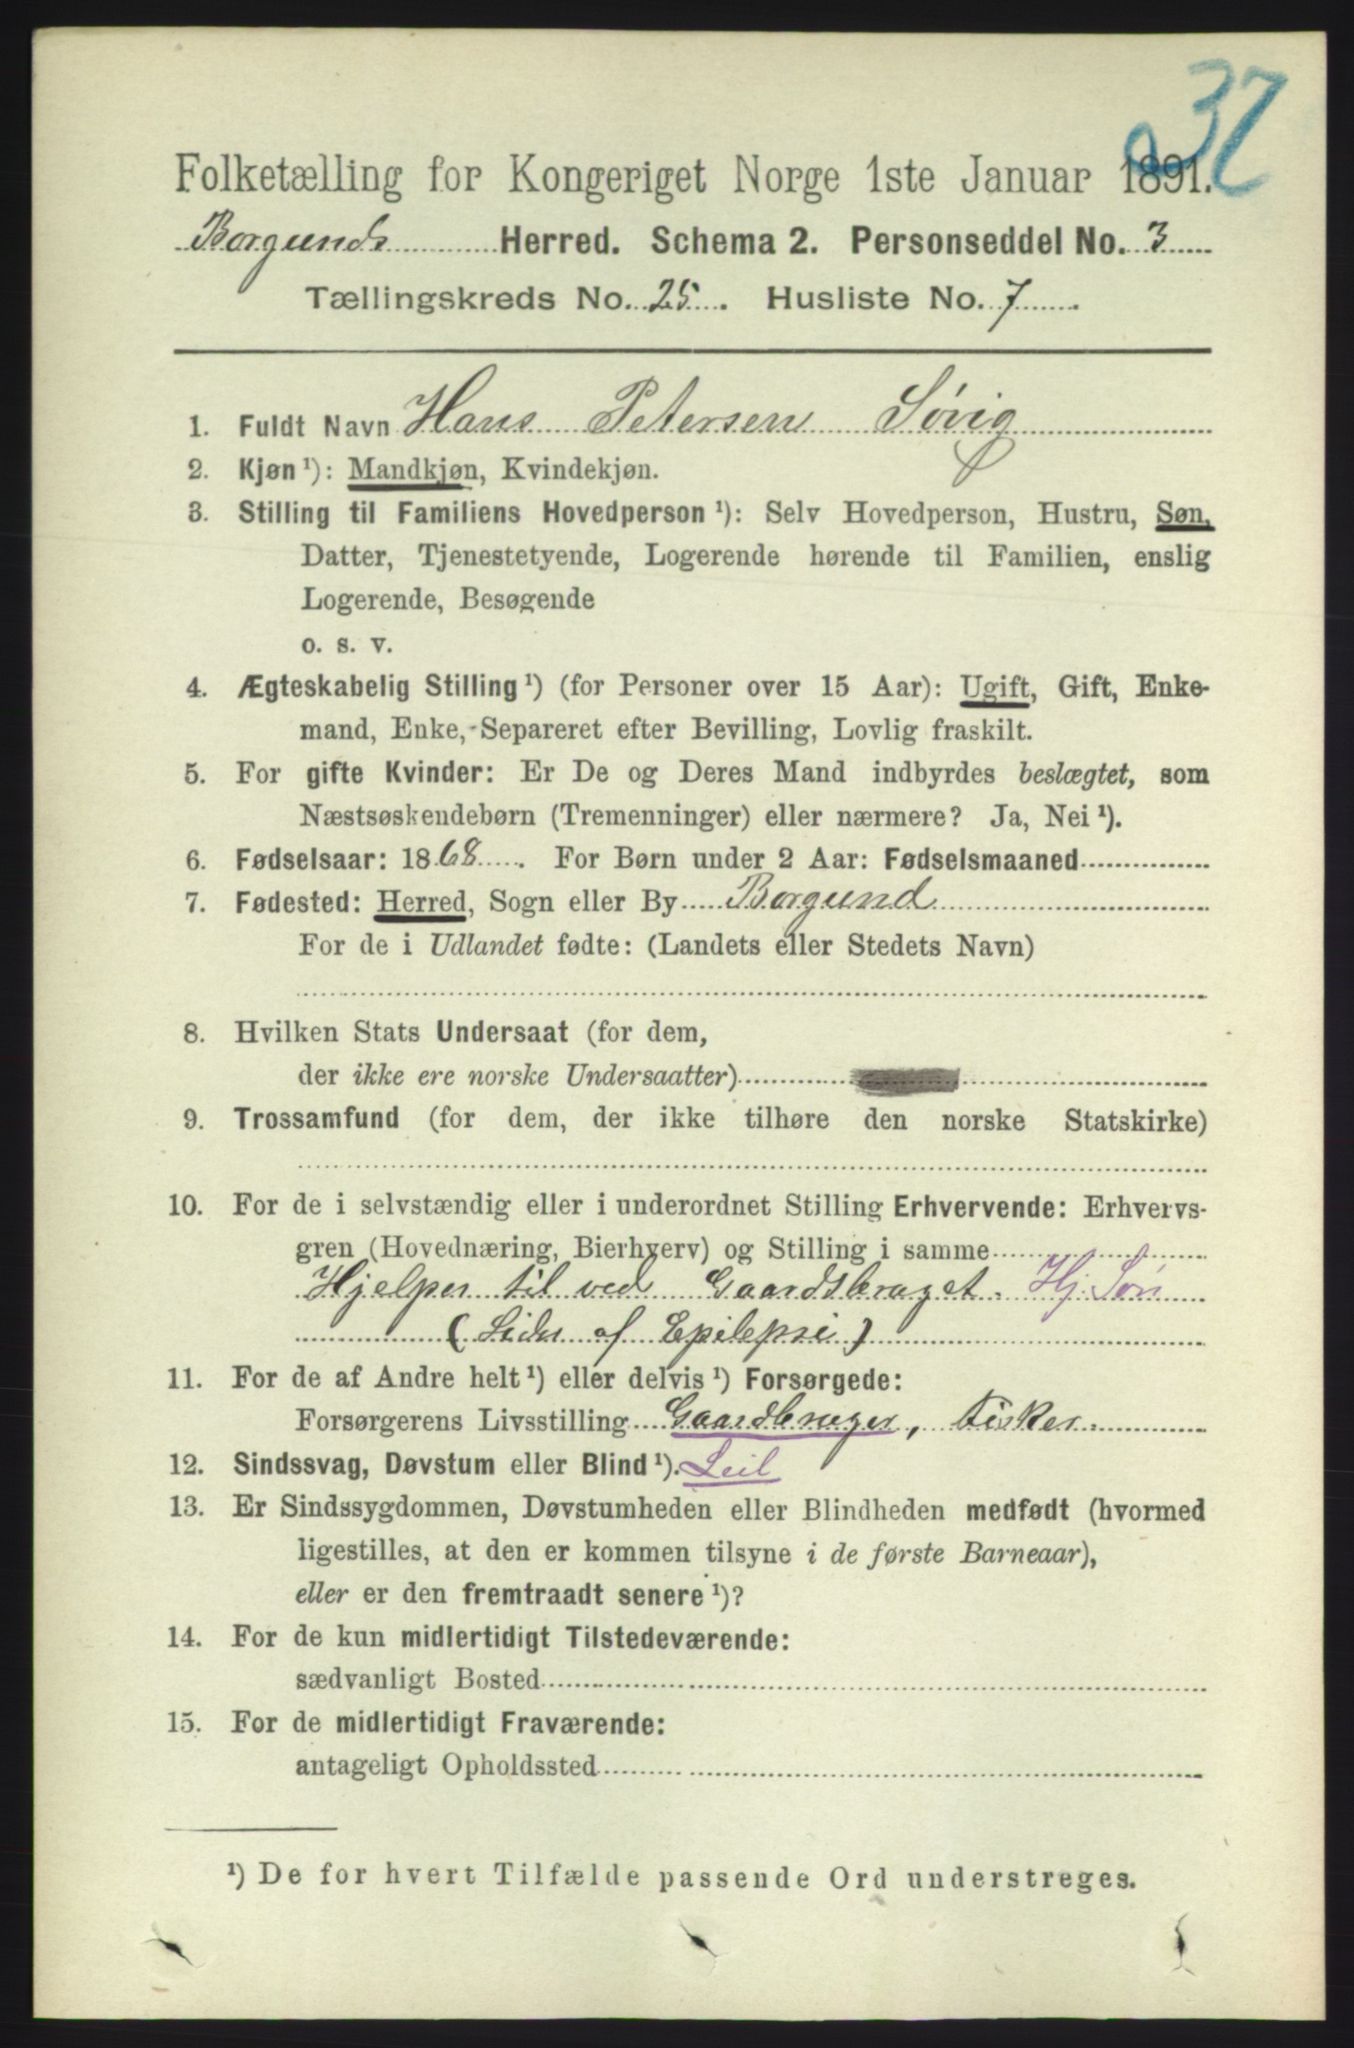 37
Folketælling for Kongeriget Norge 1ste Januar 1891.
Borgunds Herred. Schema 2. Personseddel No. 3
Tællingskreds No. 25. Husliste No. 7
1. Fuldt Navn Hans Petersen Søvig
2. Kjøn ¹): Mandkjøn, Kvindekjøn.
3. Stilling til Familiens Hovedperson ¹): Selv Hovedperson, Hustru, Søn,
Datter, Tjenestetyende, Logerende hørende til Familien, enslig
Logerende, Besøgende
o. s. v.
4. Ægteskabelig Stilling ¹) (for Personer over 15 Aar): Ugift, Gift, Enke-
mand, Enke, Separeret efter Bevilling, Lovlig fraskilt.
5. For gifte Kvinder: Er De og Deres Mand indbyrdes beslægtet, som
Næstsøskendebørn (Tremenninger) eller nærmere? Ja, Nei ¹).
6. Fødselsaar: 1868. For Børn under 2 Aar: Fødselsmaaned
7. Fødested: Herred, Sogn eller By Borgund
For de i Udlandet fødte: (Landets eller Stedets Navn)
8. Hvilken Stats Undersaat (for dem,
der ikke ere norske Undersaatter)
9. Trossamfund (for dem, der ikke tilhøre den norske Statskirke)
10. For de i selvstændig eller i underordnet Stilling Erhvervende: Erhvervs-
gren (Hovednæring, Bierhverv) og Stilling i samme
Hjelper til ved Gaardsbruget. Hj. Søn
(Lider af Epilepsi)
11. For de af Andre helt ¹) eller delvis ¹) Forsørgede:
Forsørgerens Livsstilling Gaardbruger, Fisker.
12. Sindssvag, Døvstum eller Blind ¹). Leil
13. Er Sindssygdommen, Døvstumheden eller Blindheden medfødt (hvormed
ligestilles, at den er kommen tilsyne i de første Barneaar),
eller er den fremtraadt senere ¹)?
14. For de kun midlertidigt Tilstedeværende:
sædvanligt Bosted
15. For de midlertidigt Fraværende:
antageligt Opholdssted
¹) De for hvert Tilfælde passende Ord understreges.